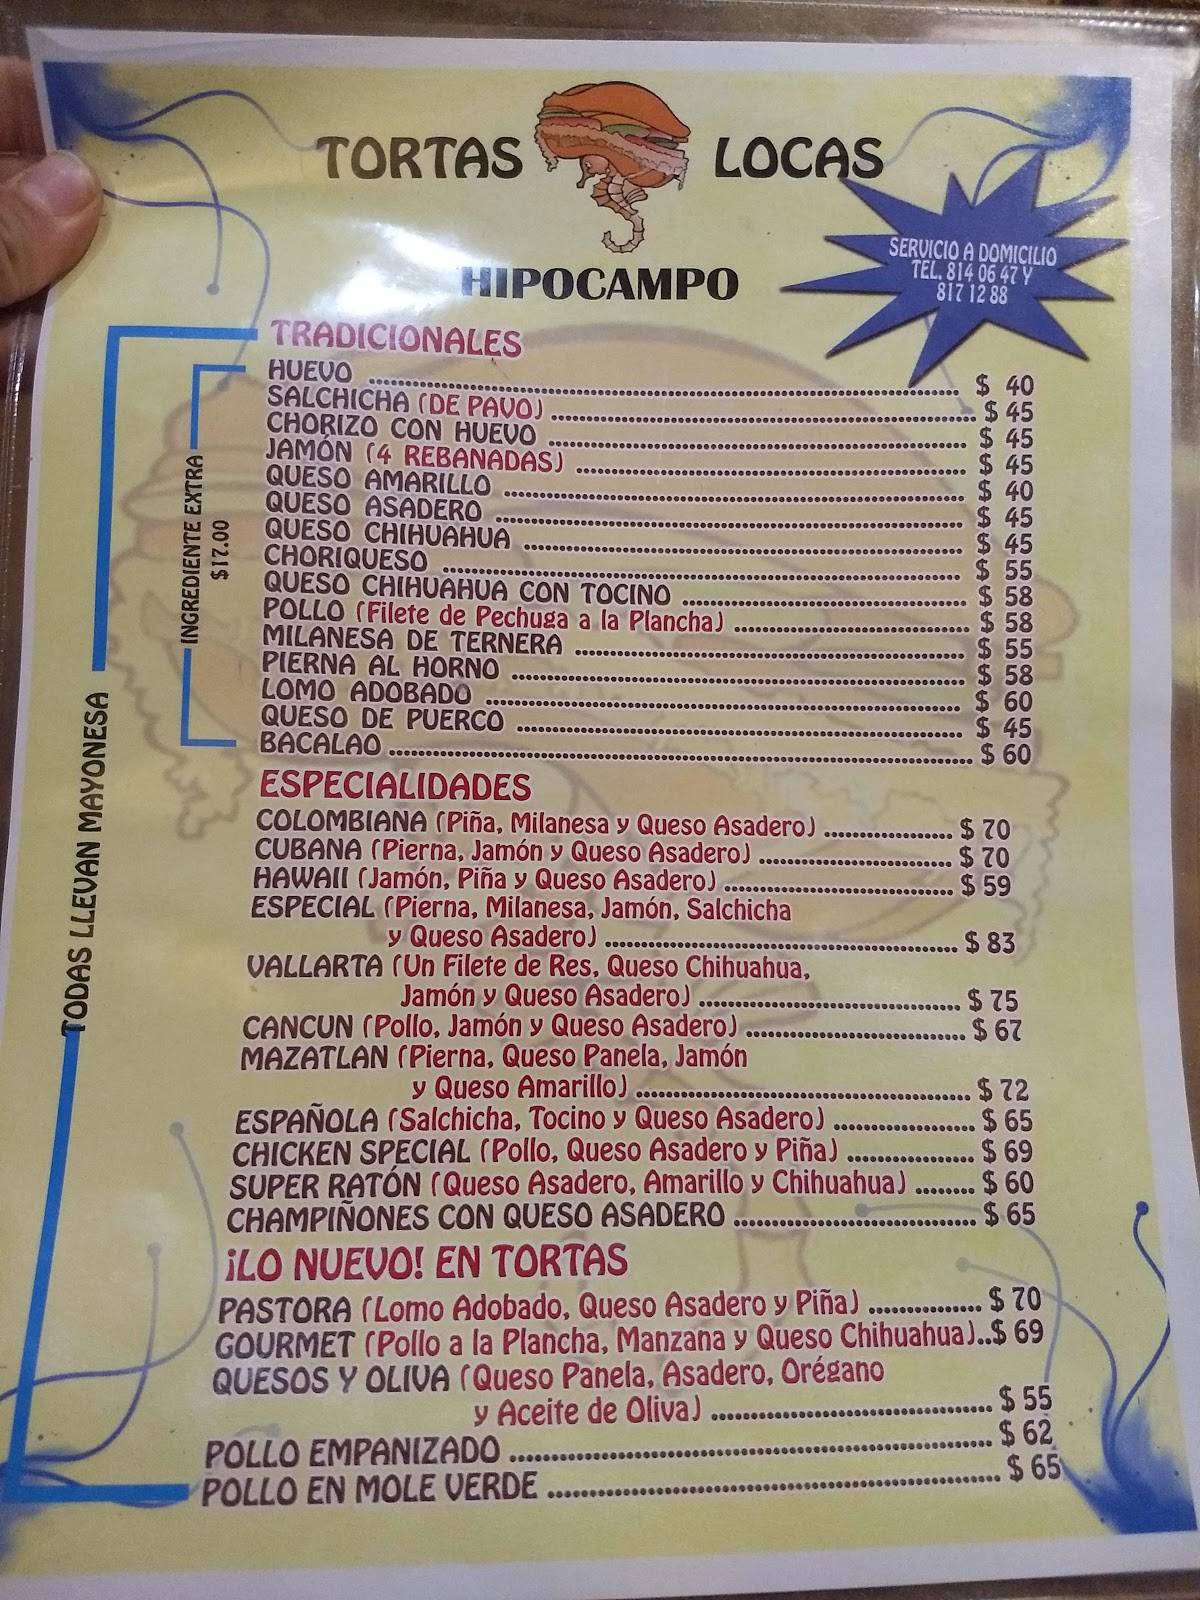 TORTAS LOCAS
HIPOCAMPO
SERVICIO A DOMICILIO
TEL. 814 06 47 Y
817 12 88
TRADICIONALES
HUEVO ........ $ 40
SALCHICHA (DE PAVO) ........ $ 45
CHORIZO CON HUEVO ........ $ 45
JAMÓN (4 REBANADAS) ........ $ 45
QUESO AMARILLO ........ $ 40
QUESO ASADERO ........ $ 45
QUESO CHIHUAHUA ........ $ 45
CHORIQUESO ........ $ 55
QUESO CHIHUAHUA CON TOCINO ........ $ 58
POLLO (Filete de Pechuga a la Plancha) ........ $ 58
MILANESA DE TERNERA ........ $ 55
PIERNA AL HORNO ........ $ 58
LOMO ADOBADO ........ $ 60
QUESO DE PUERCO ........ $ 45
BACALAO ........ $ 60
INGREDIENTE EXTRA
$17.00
TODAS LLEVAN MAYONESA
ESPECIALIDADES
COLOMBIANA (Piña, Milanesa y Queso Asadero) ........ $ 70
CUBANA (Pierna, Jamón y Queso Asadero) ........ $ 70
HAWAII (Jamón, Piña y Queso Asadero) ........ $ 59
ESPECIAL (Pierna, Milanesa, Jamón, Salchicha
y Queso Asadero) ........ $ 83
VALLARTA (Un Filete de Res, Queso Chihuahua,
Jamón y Queso Asadero) ........ $ 75
CANCUN (Pollo, Jamón y Queso Asadero) ........ $ 67
MAZATLAN (Pierna, Queso Panela, Jamón
y Queso Amarillo) ........ $ 72
ESPAÑOLA (Salchicha, Tocino y Queso Asadero) ........ $ 65
CHICKEN SPECIAL (Pollo, Queso Asadero y Piña) ........ $ 69
SUPER RATÓN (Queso Asadero, Amarillo y Chihuahua) ........ $ 60
CHAMPIÑONES CON QUESO ASADERO ........ $ 65
¡LO NUEVO! EN TORTAS
PASTORA (Lomo Adobado, Queso Asadero y Piña) ........ $ 70
GOURMET (Pollo a la Plancha, Manzana y Queso Chihuahua)..$ 69
QUESOS Y OLIVA (Queso Panela, Asadero, Orégano
y Aceite de Oliva) ........ $ 55
POLLO EMPANIZADO ........ $ 62
POLLO EN MOLE VERDE ........ $ 65